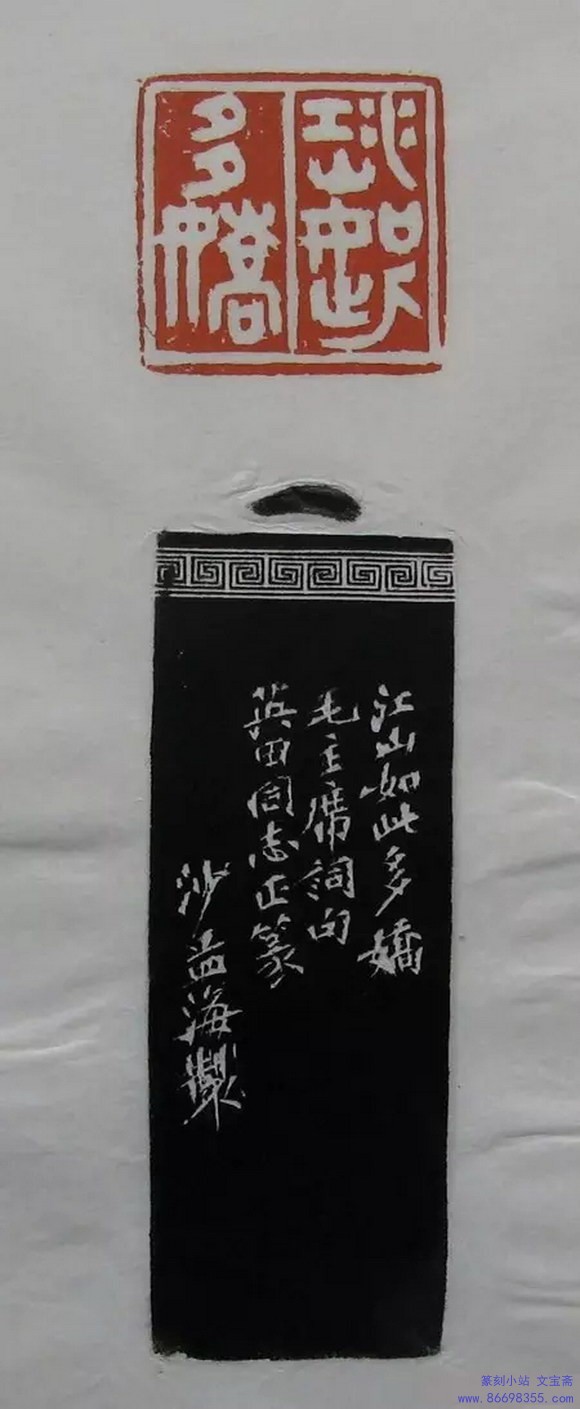 江山如此
多嬌
江山如此多嬌
毛主席詞句
英田同志正篆
沙孟海製
篆刻小站 文宝斋
www.86698355.com